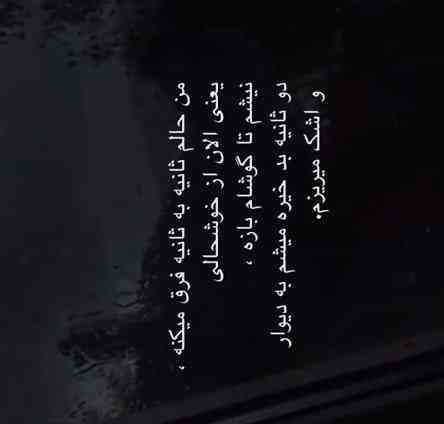 من حالم ثانیه به ثانیه فرق میکنه ،
یعنی الان از خوشحالی
نیشم تا گوشام بازه ،
دو ثانیه بد خیره میشم به دیوار
و اشک میریزم.